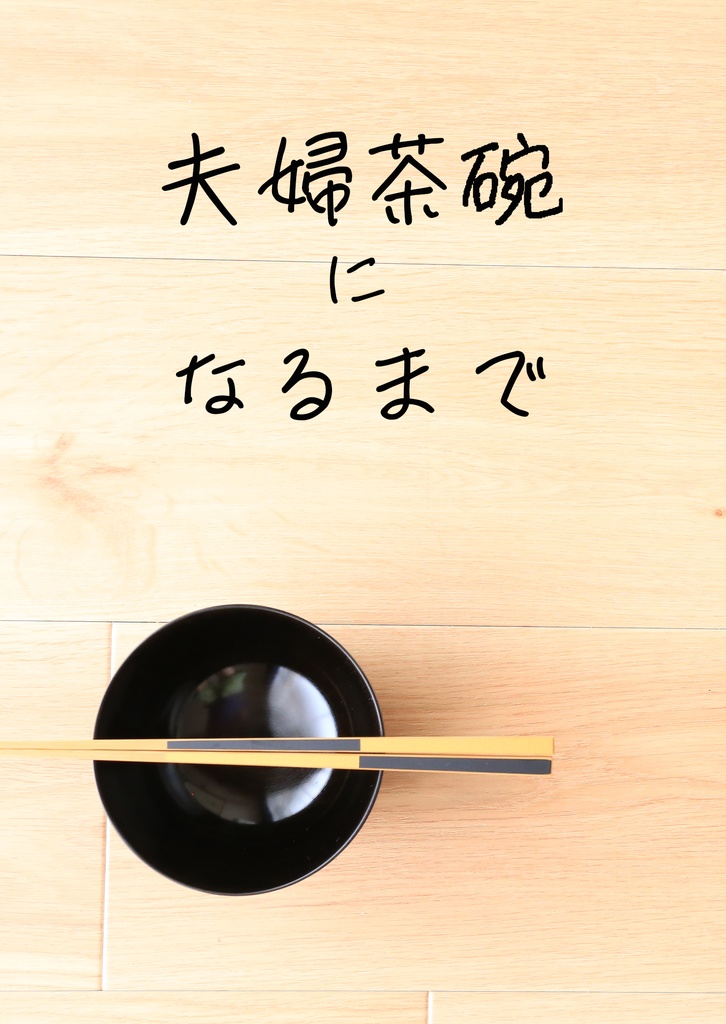 夫婦茶碗
に
なるまで